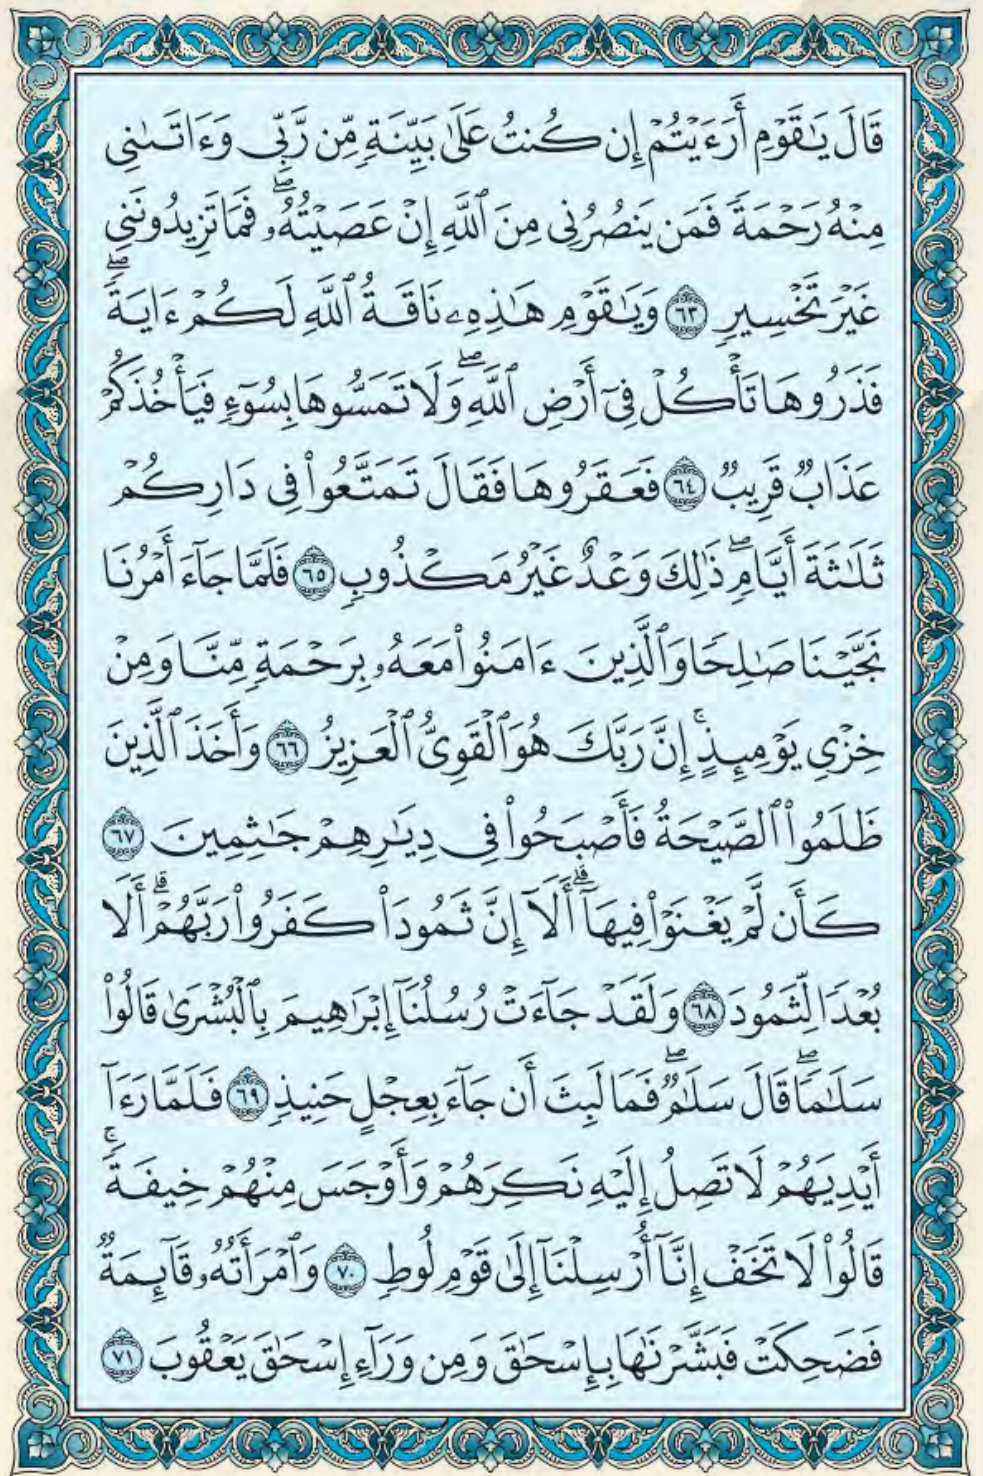 قَالَ يَٰقَوْمِ أَرَءَيْتُمْ إِن كُنتُ عَلَىٰ بَيِّنَةٍ مِّن رَّبِّى وَءَاتَىٰنِى
مِنْهُ رَحْمَةً فَمَن يَنصُرُنِى مِنَ ٱللَّهِ إِنْ عَصَيْتُهُۥۖ فَمَا تَزِيدُونَنِى
غَيْرَ تَخْسِيرٍ ٦٣ وَيَٰقَوْمِ هَٰذِهِۦ نَاقَةُ ٱللَّهِ لَكُمْ ءَايَةًۖ
فَذَرُوهَا تَأْكُلْ فِىٓ أَرْضِ ٱللَّهِۖ وَلَا تَمَسُّوهَا بِسُوٓءٍ فَيَأْخُذَكُمْ
عَذَابٌ قَرِيبٌ ٦٤ فَعَقَرُوهَا فَقَالَ تَمَتَّعُوا۟ فِى دَارِكُمْ
ثَلَٰثَةَ أَيَّامٍۖ ذَٰلِكَ وَعْدٌ غَيْرُ مَكْذُوبٍ ٦٥ فَلَمَّا جَآءَ أَمْرُنَا
نَجَّيْنَا صَٰلِحًا وَٱلَّذِينَ ءَامَنُوا۟ مَعَهُۥ بِرَحْمَةٍ مِّنَّا وَمِنْ
خِزْىِ يَوْمِئِذٍۚ إِنَّ رَبَّكَ هُوَ ٱلْقَوِىُّ ٱلْعَزِيزُ ٦٦ وَأَخَذَ ٱلَّذِينَ
ظَلَمُوا۟ ٱلصَّيْحَةُ فَأَصْبَحُوا۟ فِى دِيَٰرِهِمْ جَٰثِمِينَ ٦٧
كَأَن لَّمْ يَغْنَوْا۟ فِيهَآۗ أَلَآ إِنَّ ثَمُودَا۟ كَفَرُوا۟ رَبَّهُمْۗ أَلَا
بُعْدًا لِّثَمُودَ ٦٨ وَلَقَدْ جَآءَتْ رُسُلُنَآ إِبْرَٰهِيمَ بِٱلْبُشْرَىٰ قَالُوا۟
سَلَٰمًاۖ قَالَ سَلَٰمٌۖ فَمَا لَبِثَ أَن جَآءَ بِعِجْلٍ حَنِيذٍ ٦٩ فَلَمَّا رَءَآ
أَيْدِيَهُمْ لَا تَصِلُ إِلَيْهِ نَكِرَهُمْ وَأَوْجَسَ مِنْهُمْ خِيفَةًۚ
قَالُوا۟ لَا تَخَفْ إِنَّآ أُرْسِلْنَآ إِلَىٰ قَوْمِ لُوطٍ ٧٠ وَٱمْرَأَتُهُۥ قَآئِمَةٌ
فَضَحِكَتْ فَبَشَّرْنَٰهَا بِإِسْحَٰقَ وَمِن وَرَآءِ إِسْحَٰقَ يَعْقُوبَ ٧١